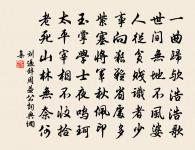 一曲歌歟浩浩歌
世間無地不風波
人從貧賤識者少
事向艱難省處多
紫塞將軍秋佩印
玉堂學士夜鳴珂
太平宰相不收拾
老死山林無奈何
劉過辭周益公詞典網
集